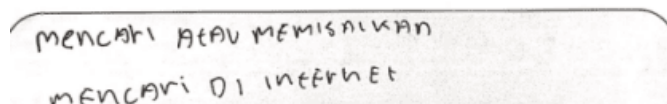 mencari AtAU MEMISALKAN
MENCARI DI intERNEt